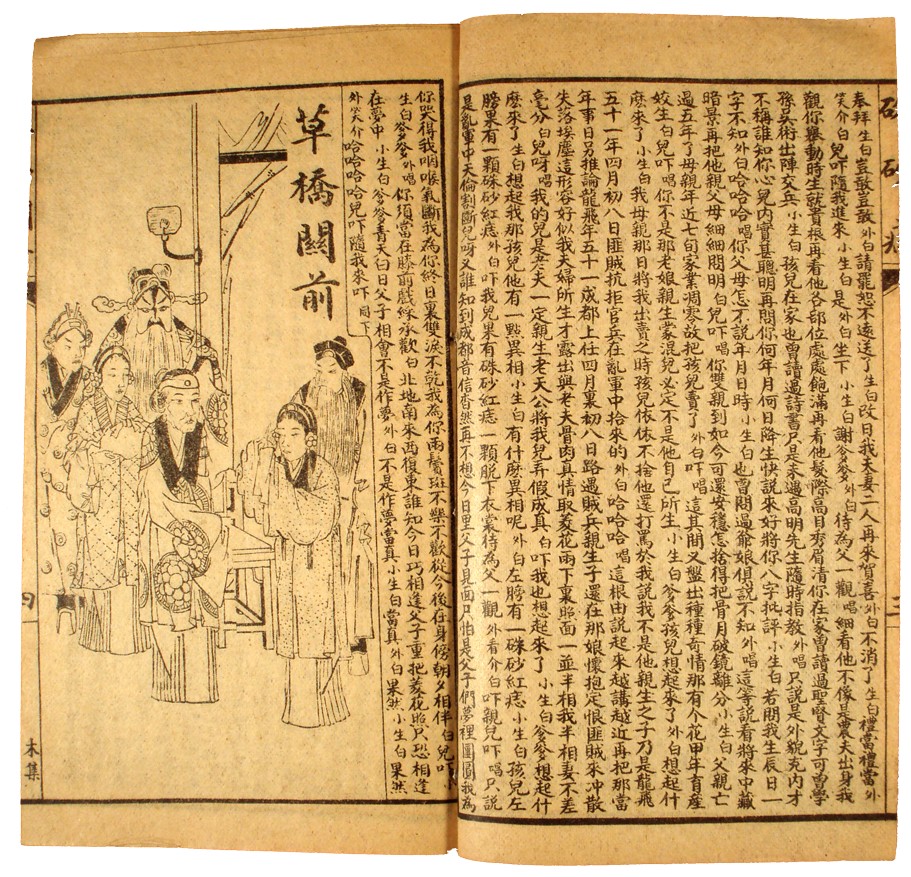 奉拜生白豈敢豈敢外白請罷恕不遠送了生白改日我夫妻二人再來賀喜外白不消了生白禮當禮當外
笑介白兒吓隨我進來小生白是外白坐下小生白謝爹爹外白待為父一觀唱細看他不像是農夫出身我
觀你舉動時生就貴根再看他各部位處處飽滿再看他髮際高目秀眉清你在家曾請過聖賢文字可曾學
孫吳術出陣交兵小生白孩兒在家也曾讀過詩書只是未遇高明先生隨時指教外唱只說是外貌克內才
不稱誰知你心兒內實甚聰明再問你何年月何日降生快說來好將你八字批評小生白若問我生辰日一
字不知外白哈哈哈唱你父母怎不說年月日時小生白也曾問過爺娘俱說不知外唱這等說看將來中藏
暗景再把他親父母細細問明白兒吓唱你雙親到如今可還安穩怎捨得把骨月破鏡離分小生白父親亡
過五年了母親年近七旬家業凋零故把孩兒賣了外白吓唱這其間又盤出種種奇情那有个花甲年育產
姣生白兒吓唱你不是那老娘親生蒙混兒必定不是他自己所生小生白爹爹孩兒想起來了外白想起什
麽來了小生白我母親那日將我出賣之時孩兒依依不捨他還打罵於我說我不是他親生之子乃是龍飛
五十一年四月初八日匪賊抗拒官兵在亂軍中拾來的外白哈哈哈唱這根由說起來越講越近再把那當
年事日另推論龍飛年五十一成都上任四月裏初八日路遇賊兵親生子還在那娘懷抱定恨匪賊來冲散
失落埃塵這形容好似我夫婦所生才露出與老夫骨肉真情取菱花兩下裏照面一並半相我半相妻不差
毫分白兒呀唱我的兒是老夫一定親生老天公將我兒弄假成真白吓我也想起來了小生白爹爹想起什
麽來了生白想起我那孩兒他有一點異相小生白有什麽異相呢外白左膀有一硃砂紅痣小生白孩兒左
膀果有一顆硃砂紅痣外白吓我兒果有硃砂紅痣一顆脫下衣裳待為父一觀外看介白吓親兒吓唱只說
是亂軍中天倫割斷兒呀又誰知到成都音信杳然再不想今日里父子見面只怕是父子們夢裡團圓我為
你哭得我咽喉氣斷我為你終日裏雙淚不乾我為你兩鬢斑不樂不歡從今後在身傍朝夕相伴白兒吓
生白爹爹外唱你須當在膝前戲綵承歡白北地南來西復東誰知今日巧相逢父子重把菱花照只恐相逢
在夢中小生白爹爹青天白日父子相會不是作夢外白不是作夢當真小生白當真外白果然小生白果然
外笑介哈哈哈哈兒吓隨我來吓同下
草橋關前
四
木集